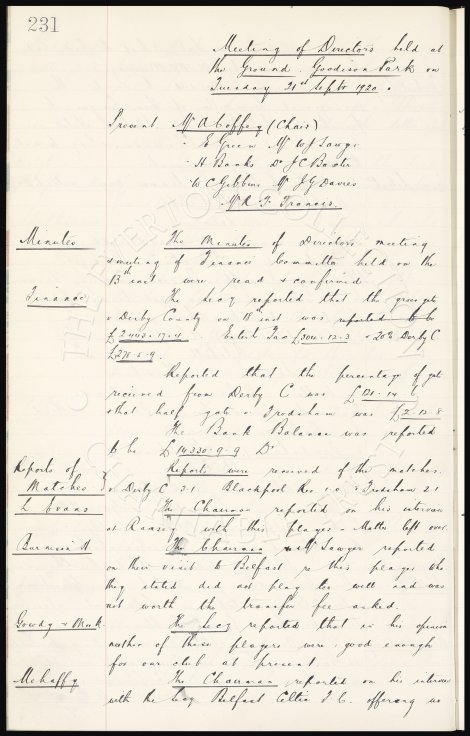 231
Meeting of Directors held at
the Ground. Goodison Park on
Tuesday 21st Septr 1920.
Present. Mr A Coffey (Chair)
" E Green Mr W J Sawyer
" H Banks Dr J C Baxter
" W C Gibbins Mr J G Davies
Mr R. F. Francis.
Minutes The Minutes of Directors meeting
& meeting of Finance Committee held on the
13th inst were read & confirmed.
Finance The Secy reported that the gross gate
v Derby County on inst was reported to be
£2443-17-4. Entert Tax £504-12-3 & 20% Derby C
£278-5-9.
Reported that the percentage of gate
received from Derby C was £
& that half gate v Frodsham was £
The Bank Balance was reported
to be £14330-9-9 Dr
Reports of Matches Reports were received of the matches.
v Derby C 3-1 Blackpool Res 1-0 Frodsham 2-1
L Evans The Chairman reported on his interview
at Ramsey with this player - Matter left over.
The Chairman and Mr Sawyer reported
on their visit to Belfast re this player who
they stated did not play too well and was
not worth the transfer fee asked.
Gowdy & Meek. The Secy reported that in his opinion
neither of these players were good enough
for our club at present.
Mehaffy The Chairman reported on his interview
with the Secy Belfast Celtic F.C. offering us